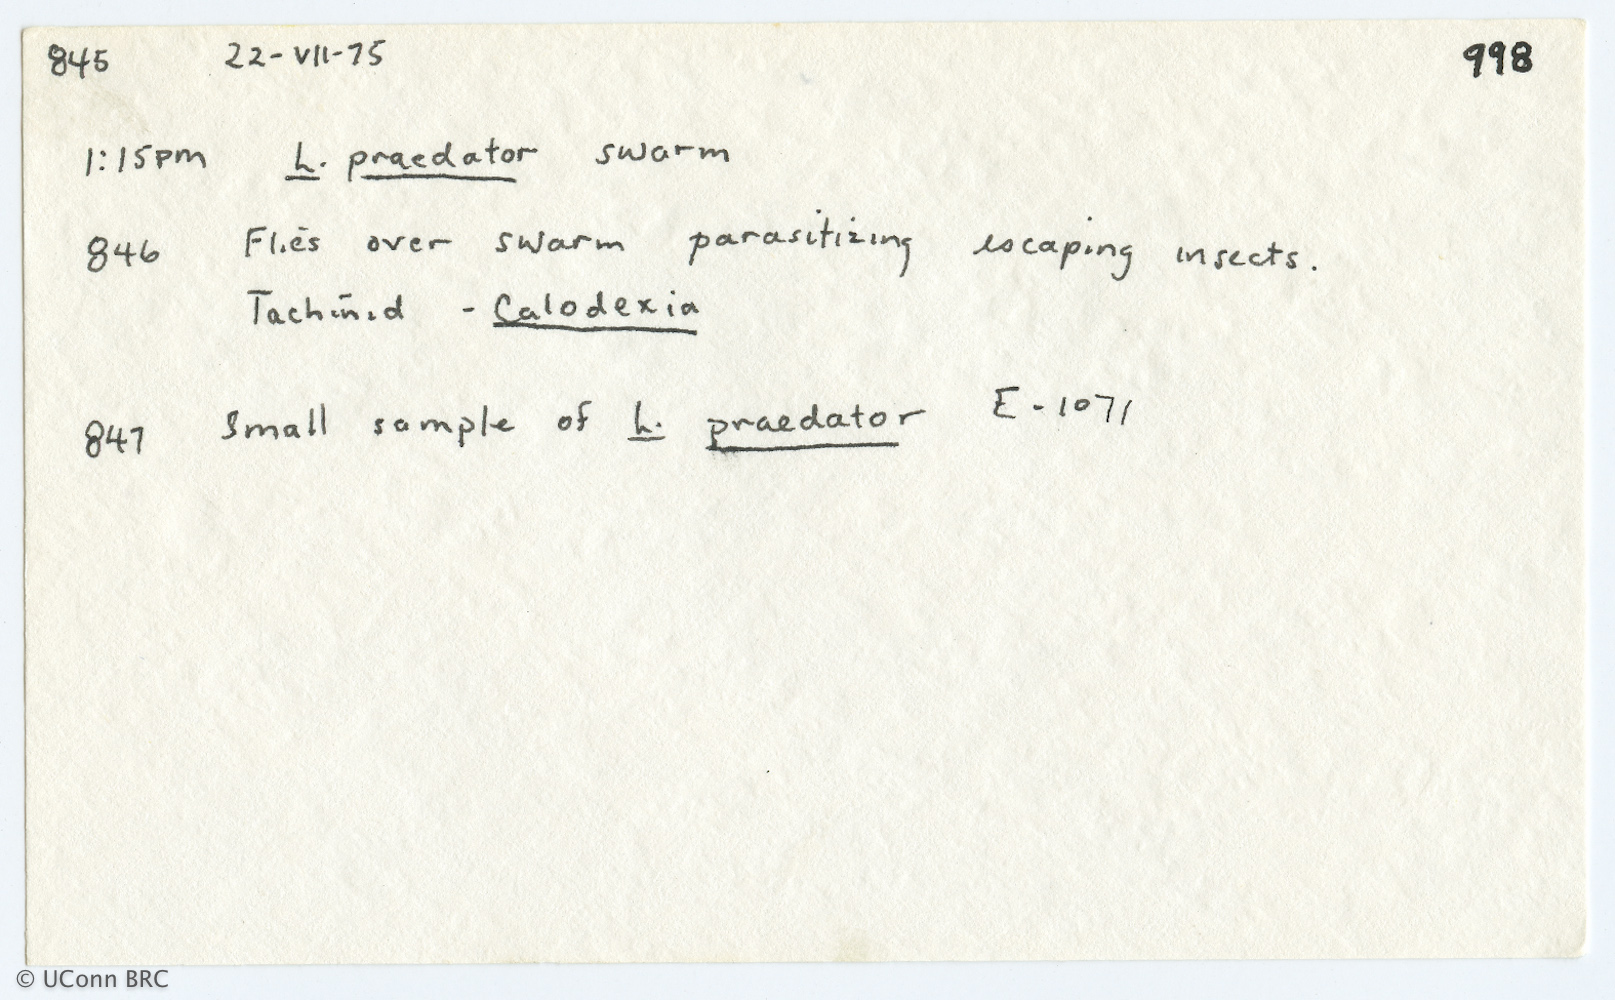 845 22-VII-75 998
1:15pm L. praedator swarm
846 Flies over swarm parasitizing escaping insects.
Tachinid - Calodexia
847 Small sample of L. praedator E-1071
© UConn BRC